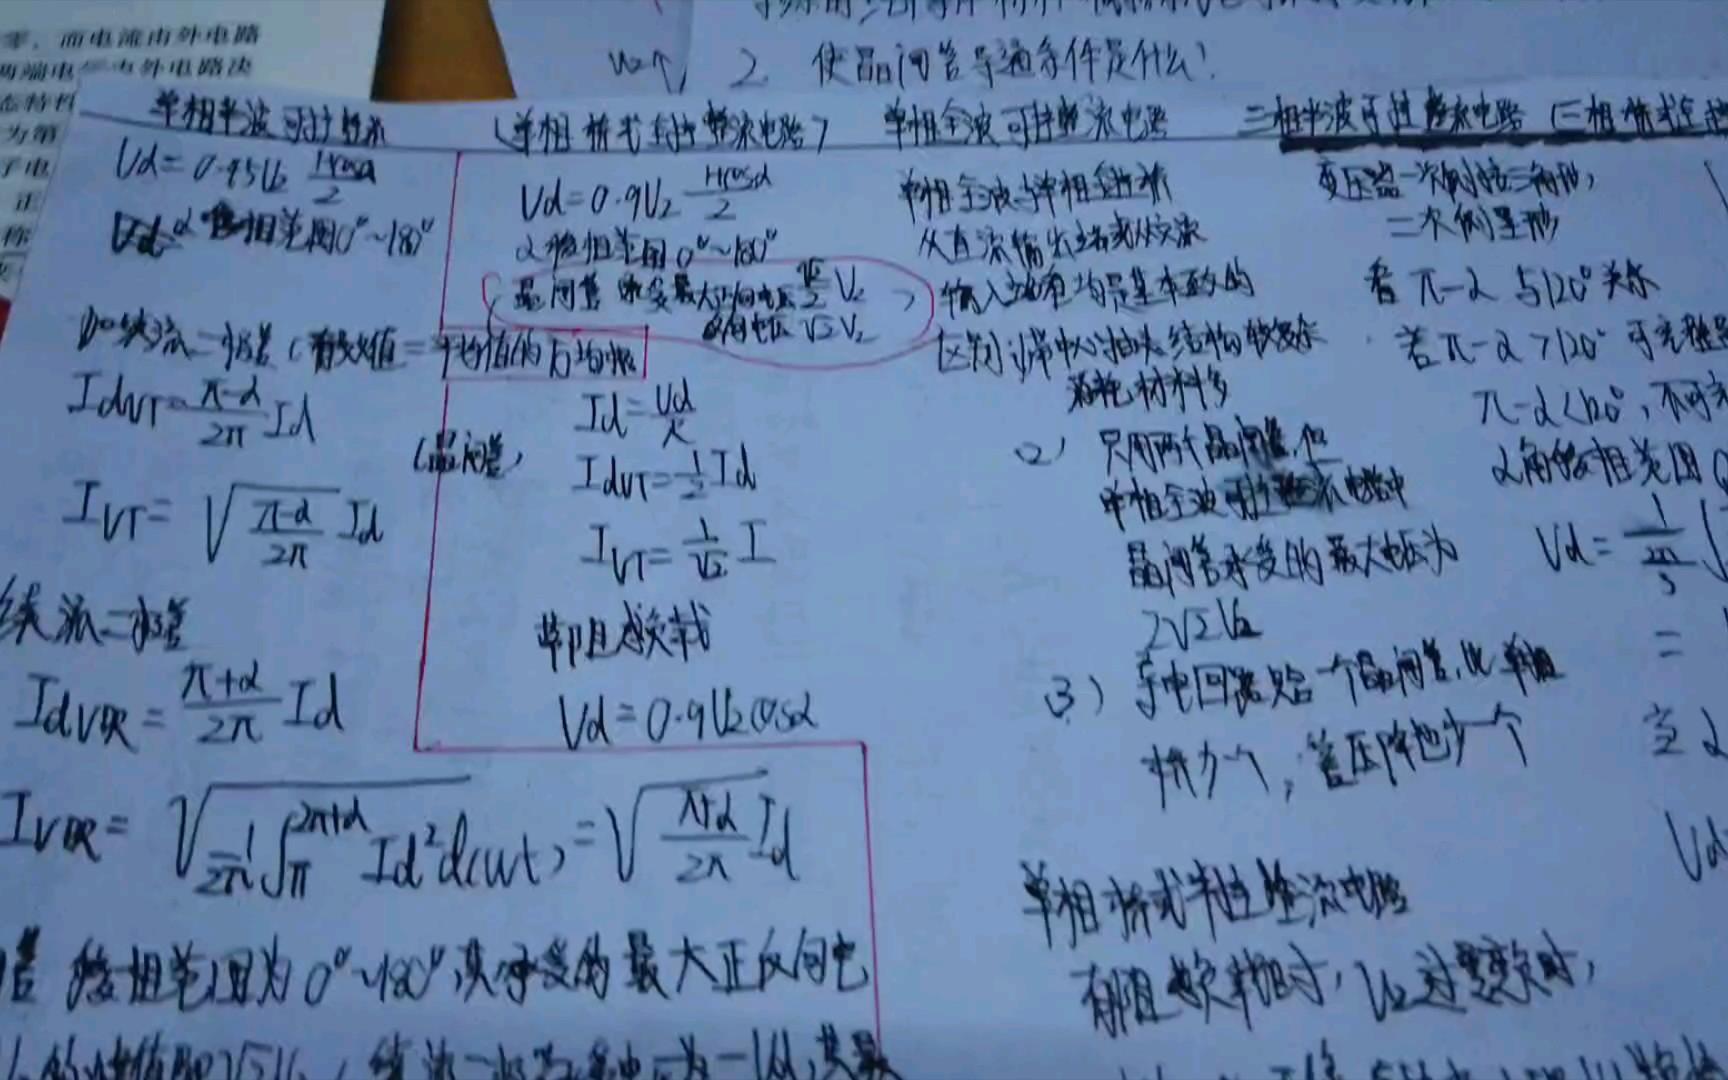 零，而电流由外电路
两端电
外电路决
态特性
为第
子电
正
称
U2↑
2 使晶闸管导通条件是什么?
单相半波可控整流
Ud=0.45U2 (1+cosα)/2
α 移相范围0°~180°
加续流二极管 (有效值=平均值的方均根
IdVT=(π-α)/2π Id
IVT=√((π-α)/2π) Id
续流二极管
IdVDR=(π+α)/2π Id
IVDR=√(1/2π ∫π^(2π+α) Id²d(ωt))=√((π+α)/2π) Id
管 移相范围为0°~180°,其承受的最大正反向电
(单相桥式全控整流电路)
Ud=0.9U2 (1+cosα)/2
α移相范围0°~180°
晶闸管承受最大正向电压√2/2 U2
反向电压√2U2
Id=Ud/R
(晶闸管)
IdVT=1/2 Id
IVT=1/√2 I
带阻感负载
Ud=0.9U2cosα
单相全波可控整流电路
单相全波与单相全控桥
从直流输出端或从交流
输入端看均是基本一致的
区别 1)带中心抽头结构较复杂
消耗材料多
(2) 只用两个晶闸管,但
单相全波可控整流电路中
晶闸管承受的最大电压为
2√2U2
(3) 导电回路只含一个晶闸管,比单相
桥少一个,管压降也少一个
单相桥式半控整流电路
有阻感负载时,U2过零变负时,
三相半波可控整流电路
(三相桥式全控
变压器一次侧接三角形,
二次侧星形
看π-α与120°关系
若π-α>120° 可完整
π-α<120°,不可
α角移相范围
Ud=1/(2π/3) ∫
=
当α
Ud